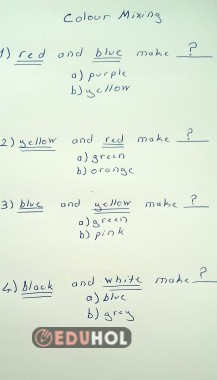 Colour Mixing
1) red and blue make ?
a) purple
b) yellow
2) yellow and red make ?
a) green
b) orange
3) blue and yellow make ?
a) green
b) pink
4) black and white make ?
a) blue
b) grey
EDUHOL